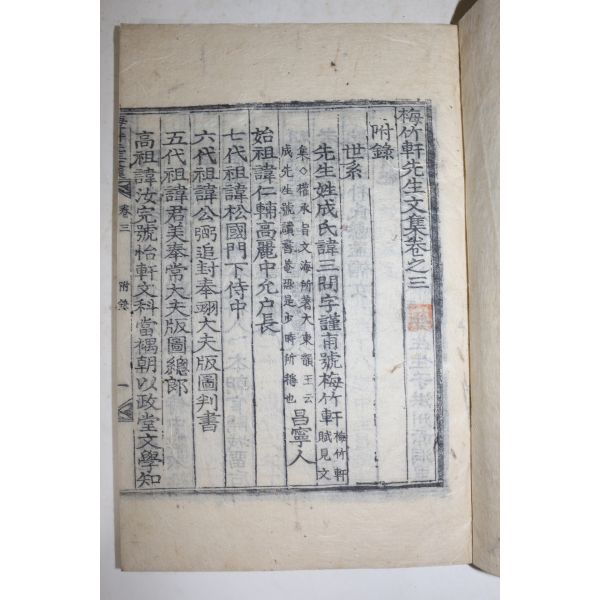 梅竹軒先生文集卷之三
附錄
世系
先生姓成氏諱三問字謹甫號梅竹軒 梅竹軒賦見文
集○權承旨文海所著大東韻玉云成先生號讀書菴恐是少時所稱也 昌寧人
始祖諱仁輔高麗中允户長
七代祖諱松國門下侍中
六代祖諱公弼追封奉翊大夫版圖判書
五代祖諱君美奉常大夫版圖總郎
高祖諱汝完號怡軒文科當禑朝以政堂文學知
卷三 附錄 一